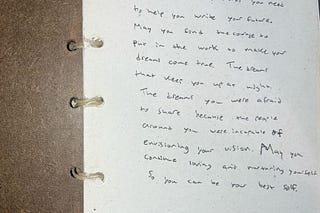 you need
to help you write your future.
May you find the courage to
put in the work to make your
dreams come true. The dreams
that keep you up at night.
The dreams you were afraid
to share because the people
around you were incapable of
envisioning your vision. May you
continue loving and nurturing yourself
So you can be your best self.